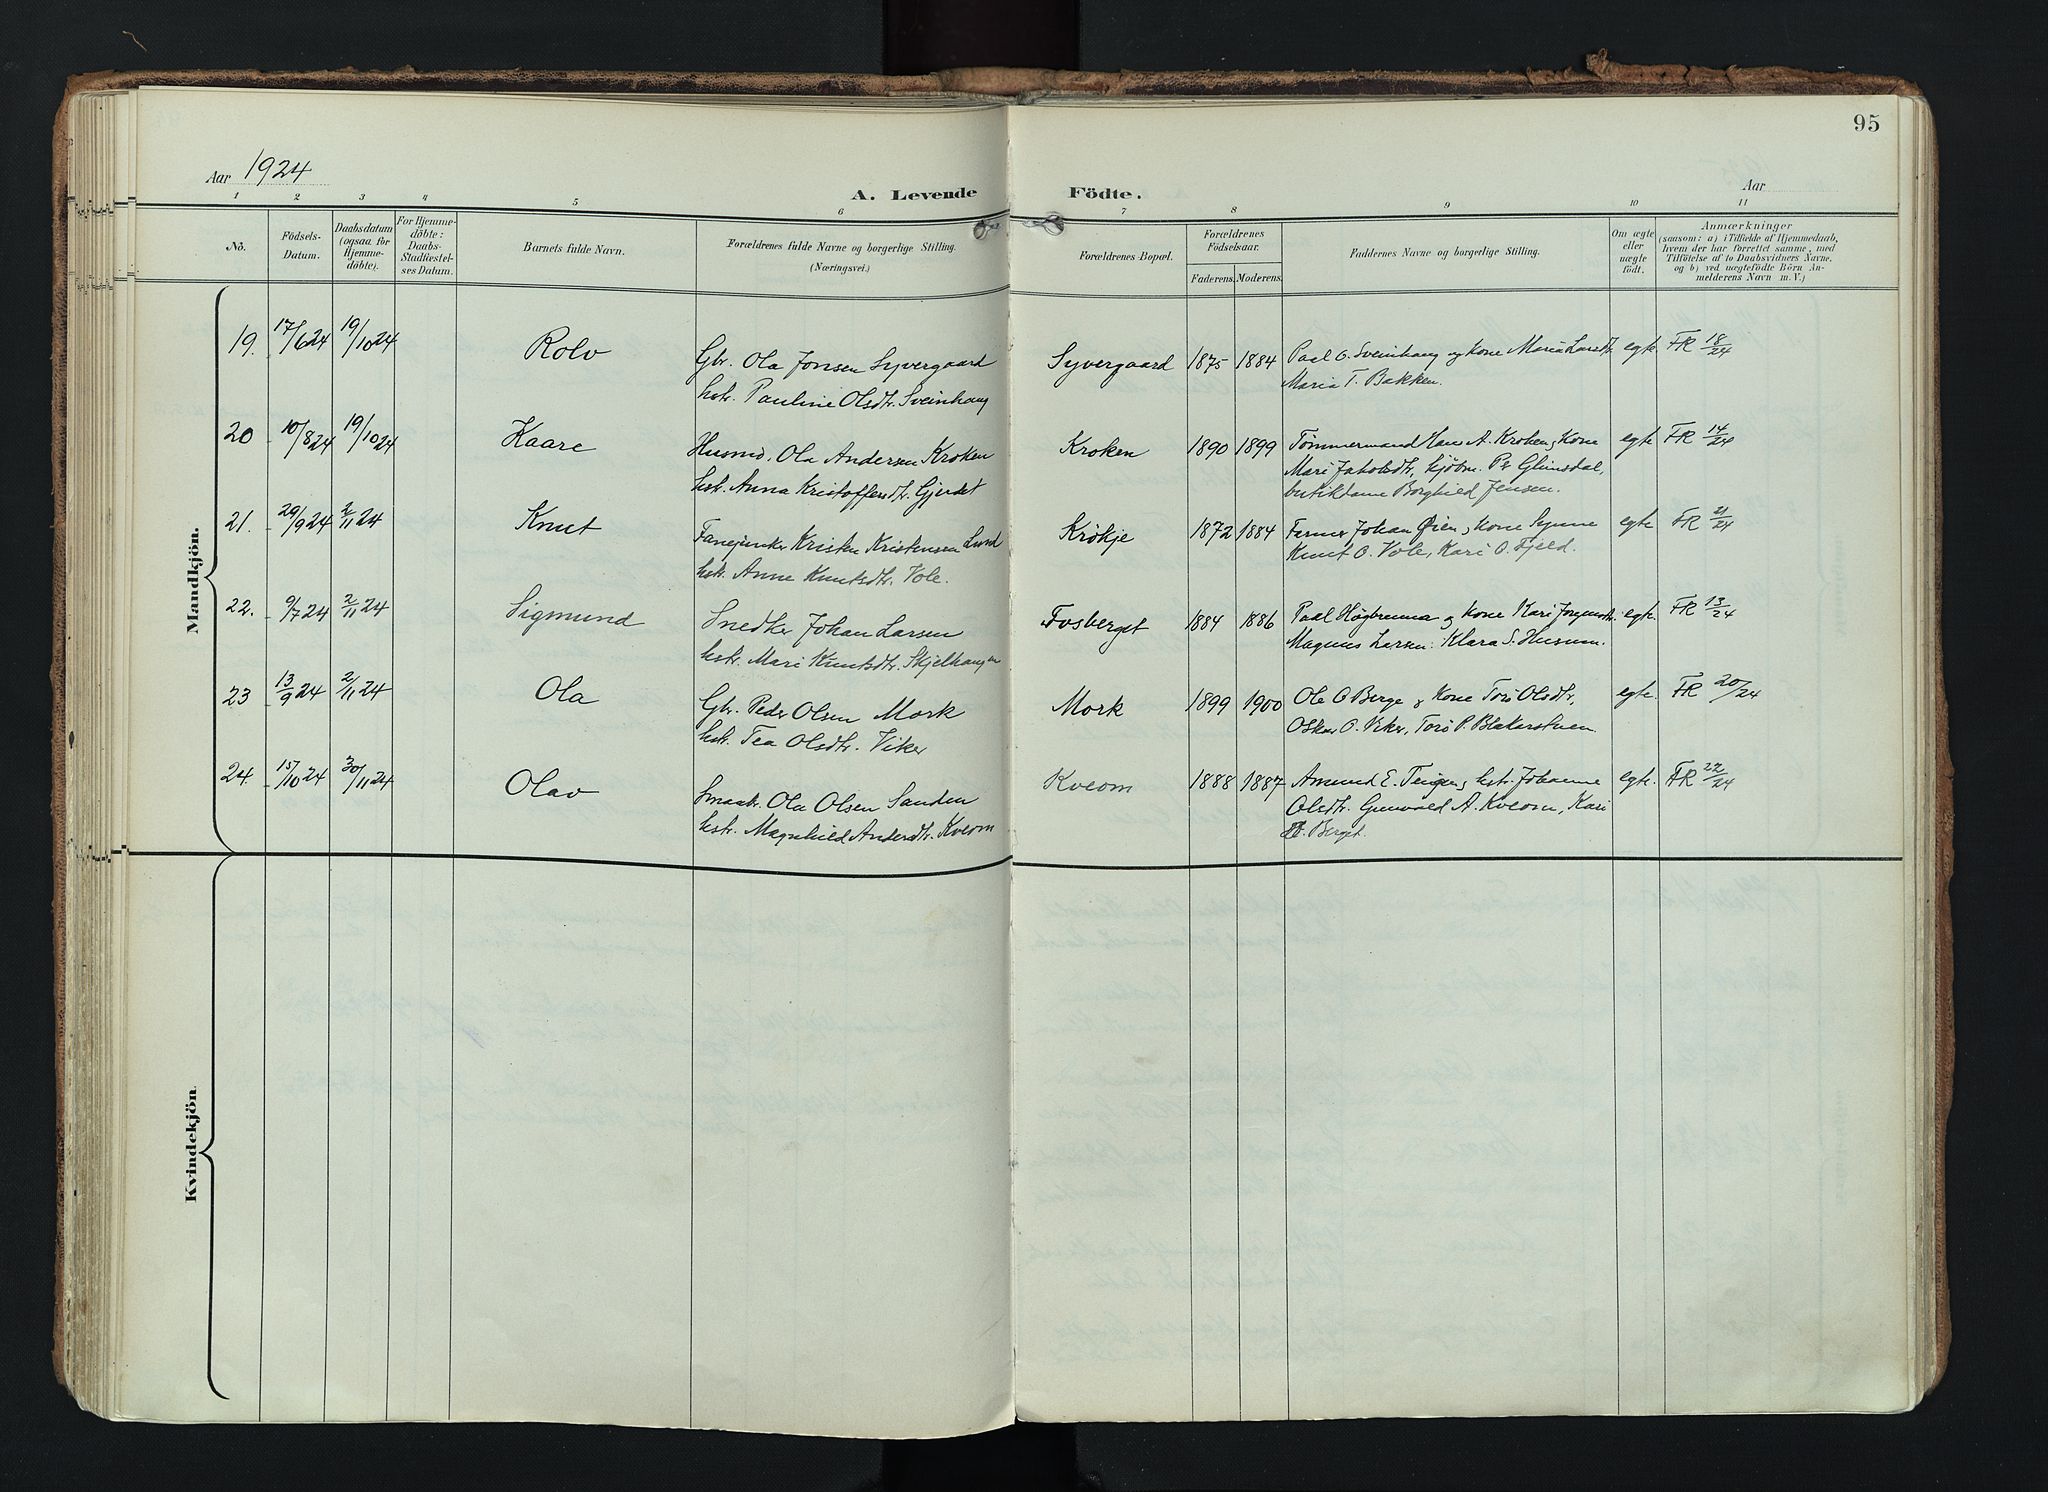 95
Aar 1924
Aar
1 2 3 4 5 6 7 8 9 10 11
A. Levende Födte.
No.
Födsels-Datum.
Daabsdatum (ogsaa for Hjemme-döbte).
For Hjemme-döbte: Daabs-Stadfæstel-ses Datum.
Barnets fulde Navn.
Forældrenes fulde Navne og borgerlige Stilling.
(Næringsvei.)
Forældrenes Bopæl.
Forældrenes Födselsaar.
Faderens. Moderens.
Faddernes Navne og borgerlige Stilling.
Om ægte eller uægte födt.
Anmærkninger
(saasom: a) i Tilfælde af Hjemmedaab,
hvem der har forrettet samme, med
Tilföielse af to Daabsvidners Navne,
og b) ved uægtefödte Börn An-
melderens Navn m. V.)
Mandkjön.
19. 17/6 24 19/10 24 Rolv Gbr. Ola Jonsen Syvergaard Syvergaard 1875 1884 Paal O. Sveinhaug og Kone Maria Larsdtr. egte FR 18/24
hstr. Pauline Olsdtr. Sveinhaug Maria T. Bakken.
20 10/8 24 19/10 24 Kaare Husmd. Ola Andersen Kroken Kroken 1890 1899 Tømmermand Hans A. Kroken, Kone egte FR 14/24
hstr. Anna Kristoffersdtr. Gjerdet Mari Jakobsdtr, kjøbm. Pr Glimsdal,
butikdame Borghild Jensen.
21. 29/9 24 2/11 24 Knut Fanejunker Kristen Kristensen Lund Krøkje 1872 1884 Farmer Johan Øien, Kone Synne egte FR 21/24
hstr. Anne Knutsdtr. Vole. Knut O. Vole, Kari O. Fjeld.
22. 9/7 24 2/11 24 Sigmund Snedker Johan Larsen Fosberget 1884 1886 Paal Høgbrenna og Kone Kari Jørgensdtr. egte. FR 13/24
hstr. Mari Knutsdtr. Skjelhaugen Magnus Larsen. Klara S. Husum.
23 13/9 24 2/11 24 Ola Gbr. Peder Olsen Mork Mork 1899 1900 Ole O Berge & Kone Torø Olsdtr, egte. FR 20/24
hstr. Tea Olsdtr. Viker Oskar O. Viker, Torø P. Blakarstuen.
24. 15/10 24 30/11 24 Olav Smaabr. Ola Olsen Sanden Kveom 1888 1887 Amund E. Teigen, hstr. Johanne egte. FR 22/24
hstr. Magnhild Andersdtr. Kveom Olsdtr. Gunvald A. Kveom, Kari
Berget.
Kvindekjön.